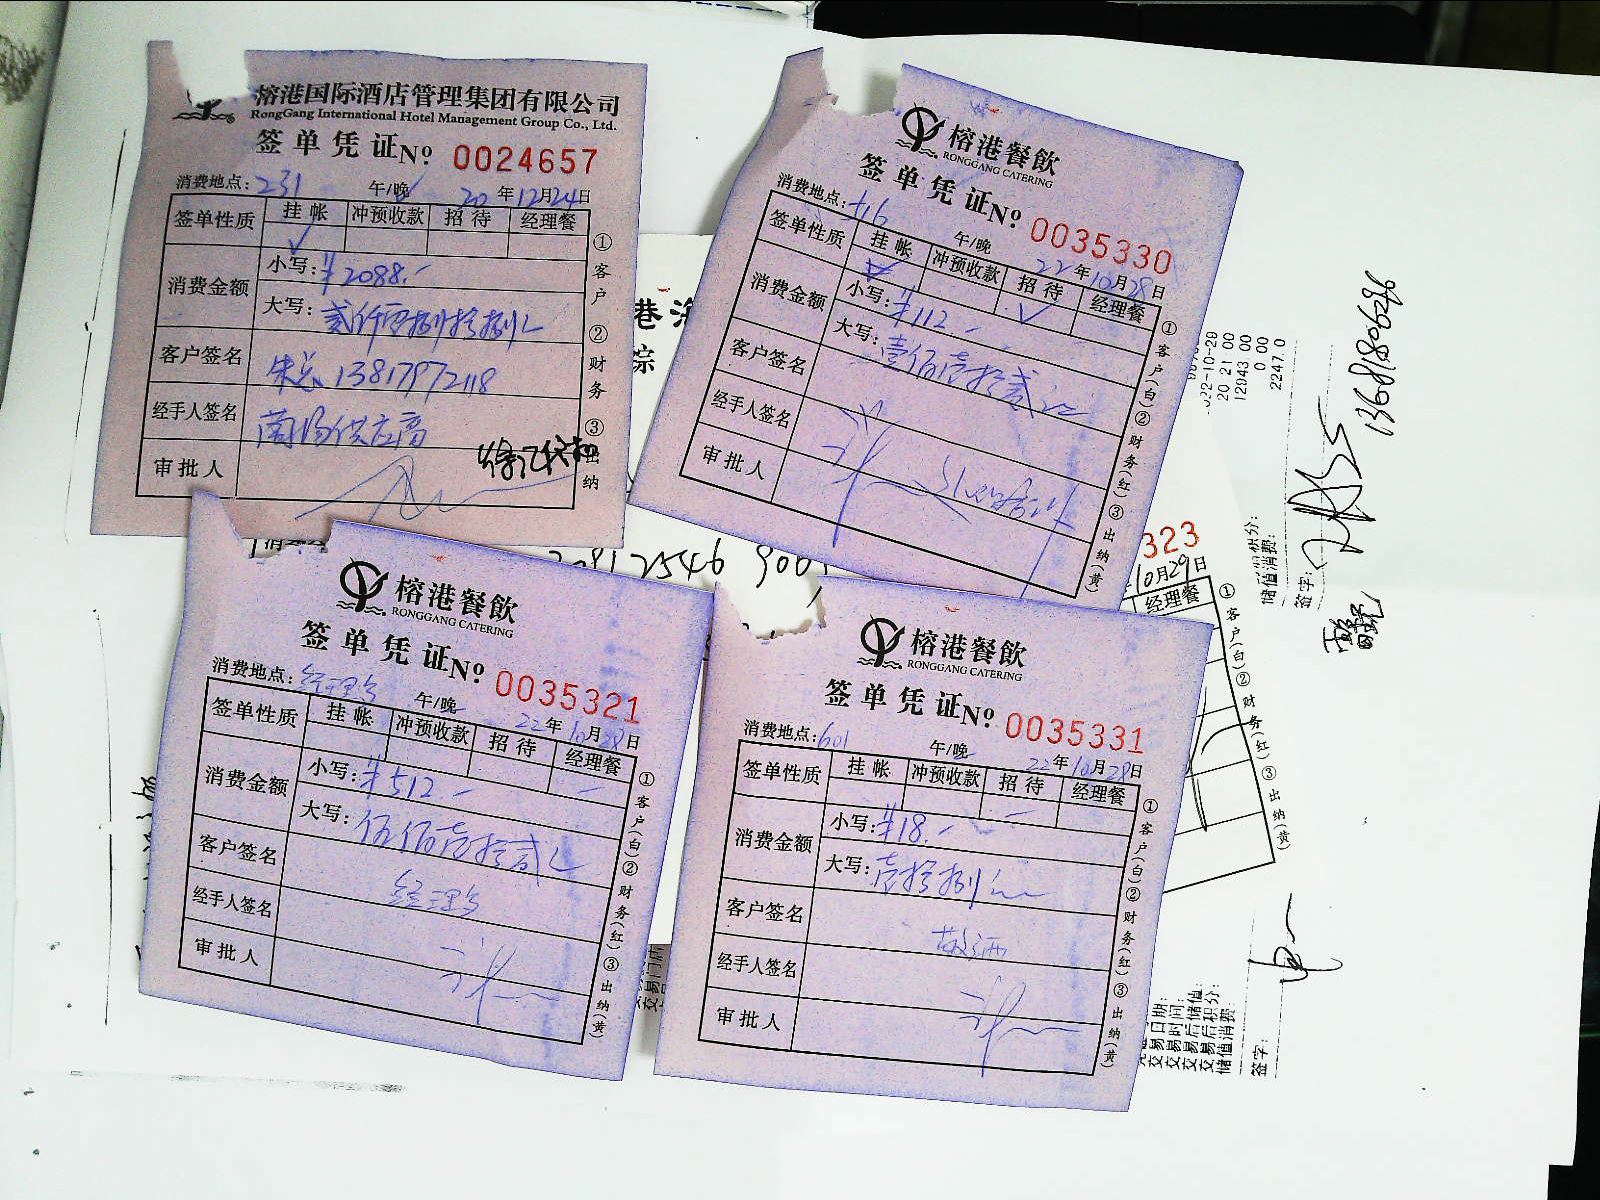 榕港国际酒店管理集团有限公司
RongGang International Hotel Management Group Co., Ltd.
签单凭证 Nº 0024657
消费地点：231 午/晚 20年12月24日
签单性质 挂帐 冲预收款 招待 经理餐
消费金额 小写：¥2088.-
大写：贰仟零捌拾捌
客户签名 朱总 13817972118
经手人签名
审批人
①客户 ②财务 ③出纳
榕港餐飲
RONGGANG CATERING
签单凭证 Nº 0035330
消费地点： 午/晚 22年10月28日
签单性质 挂帐 冲预收款 招待 经理餐
消费金额 小写：¥112.-
大写：壹佰壹拾贰元
客户签名
经手人签名
审批人
①客户(白)②财务(红)③出纳(黄)
榕港餐飲
RONGGANG CATERING
签单凭证 Nº 0035321
消费地点：经理餐 午/晚 22年10月28日
签单性质 挂帐 冲预收款 招待 经理餐
消费金额 小写：¥512.-
大写：伍佰壹拾贰
客户签名 经理餐
经手人签名
审批人
①客户(白)②财务(红)③出纳(黄)
榕港餐飲
RONGGANG CATERING
签单凭证 Nº 0035331
消费地点：601 午/晚 22年10月28日
签单性质 挂帐 冲预收款 招待 经理餐
消费金额 小写：¥18.-
大写：壹拾捌
客户签名 敬酒
经手人签名
审批人
①客户(白)②财务(红)③出纳(黄)
323
10月29日
经理餐
①客户(白)②财务(红)③出纳(黄)
2022-10-20
20 21 00
12043 00
0 00
2247.0
储值消费：
签字：
13681806296
交易日期：
交易时间：
交易后储值：
交易后积分：
储值消费：
签字：